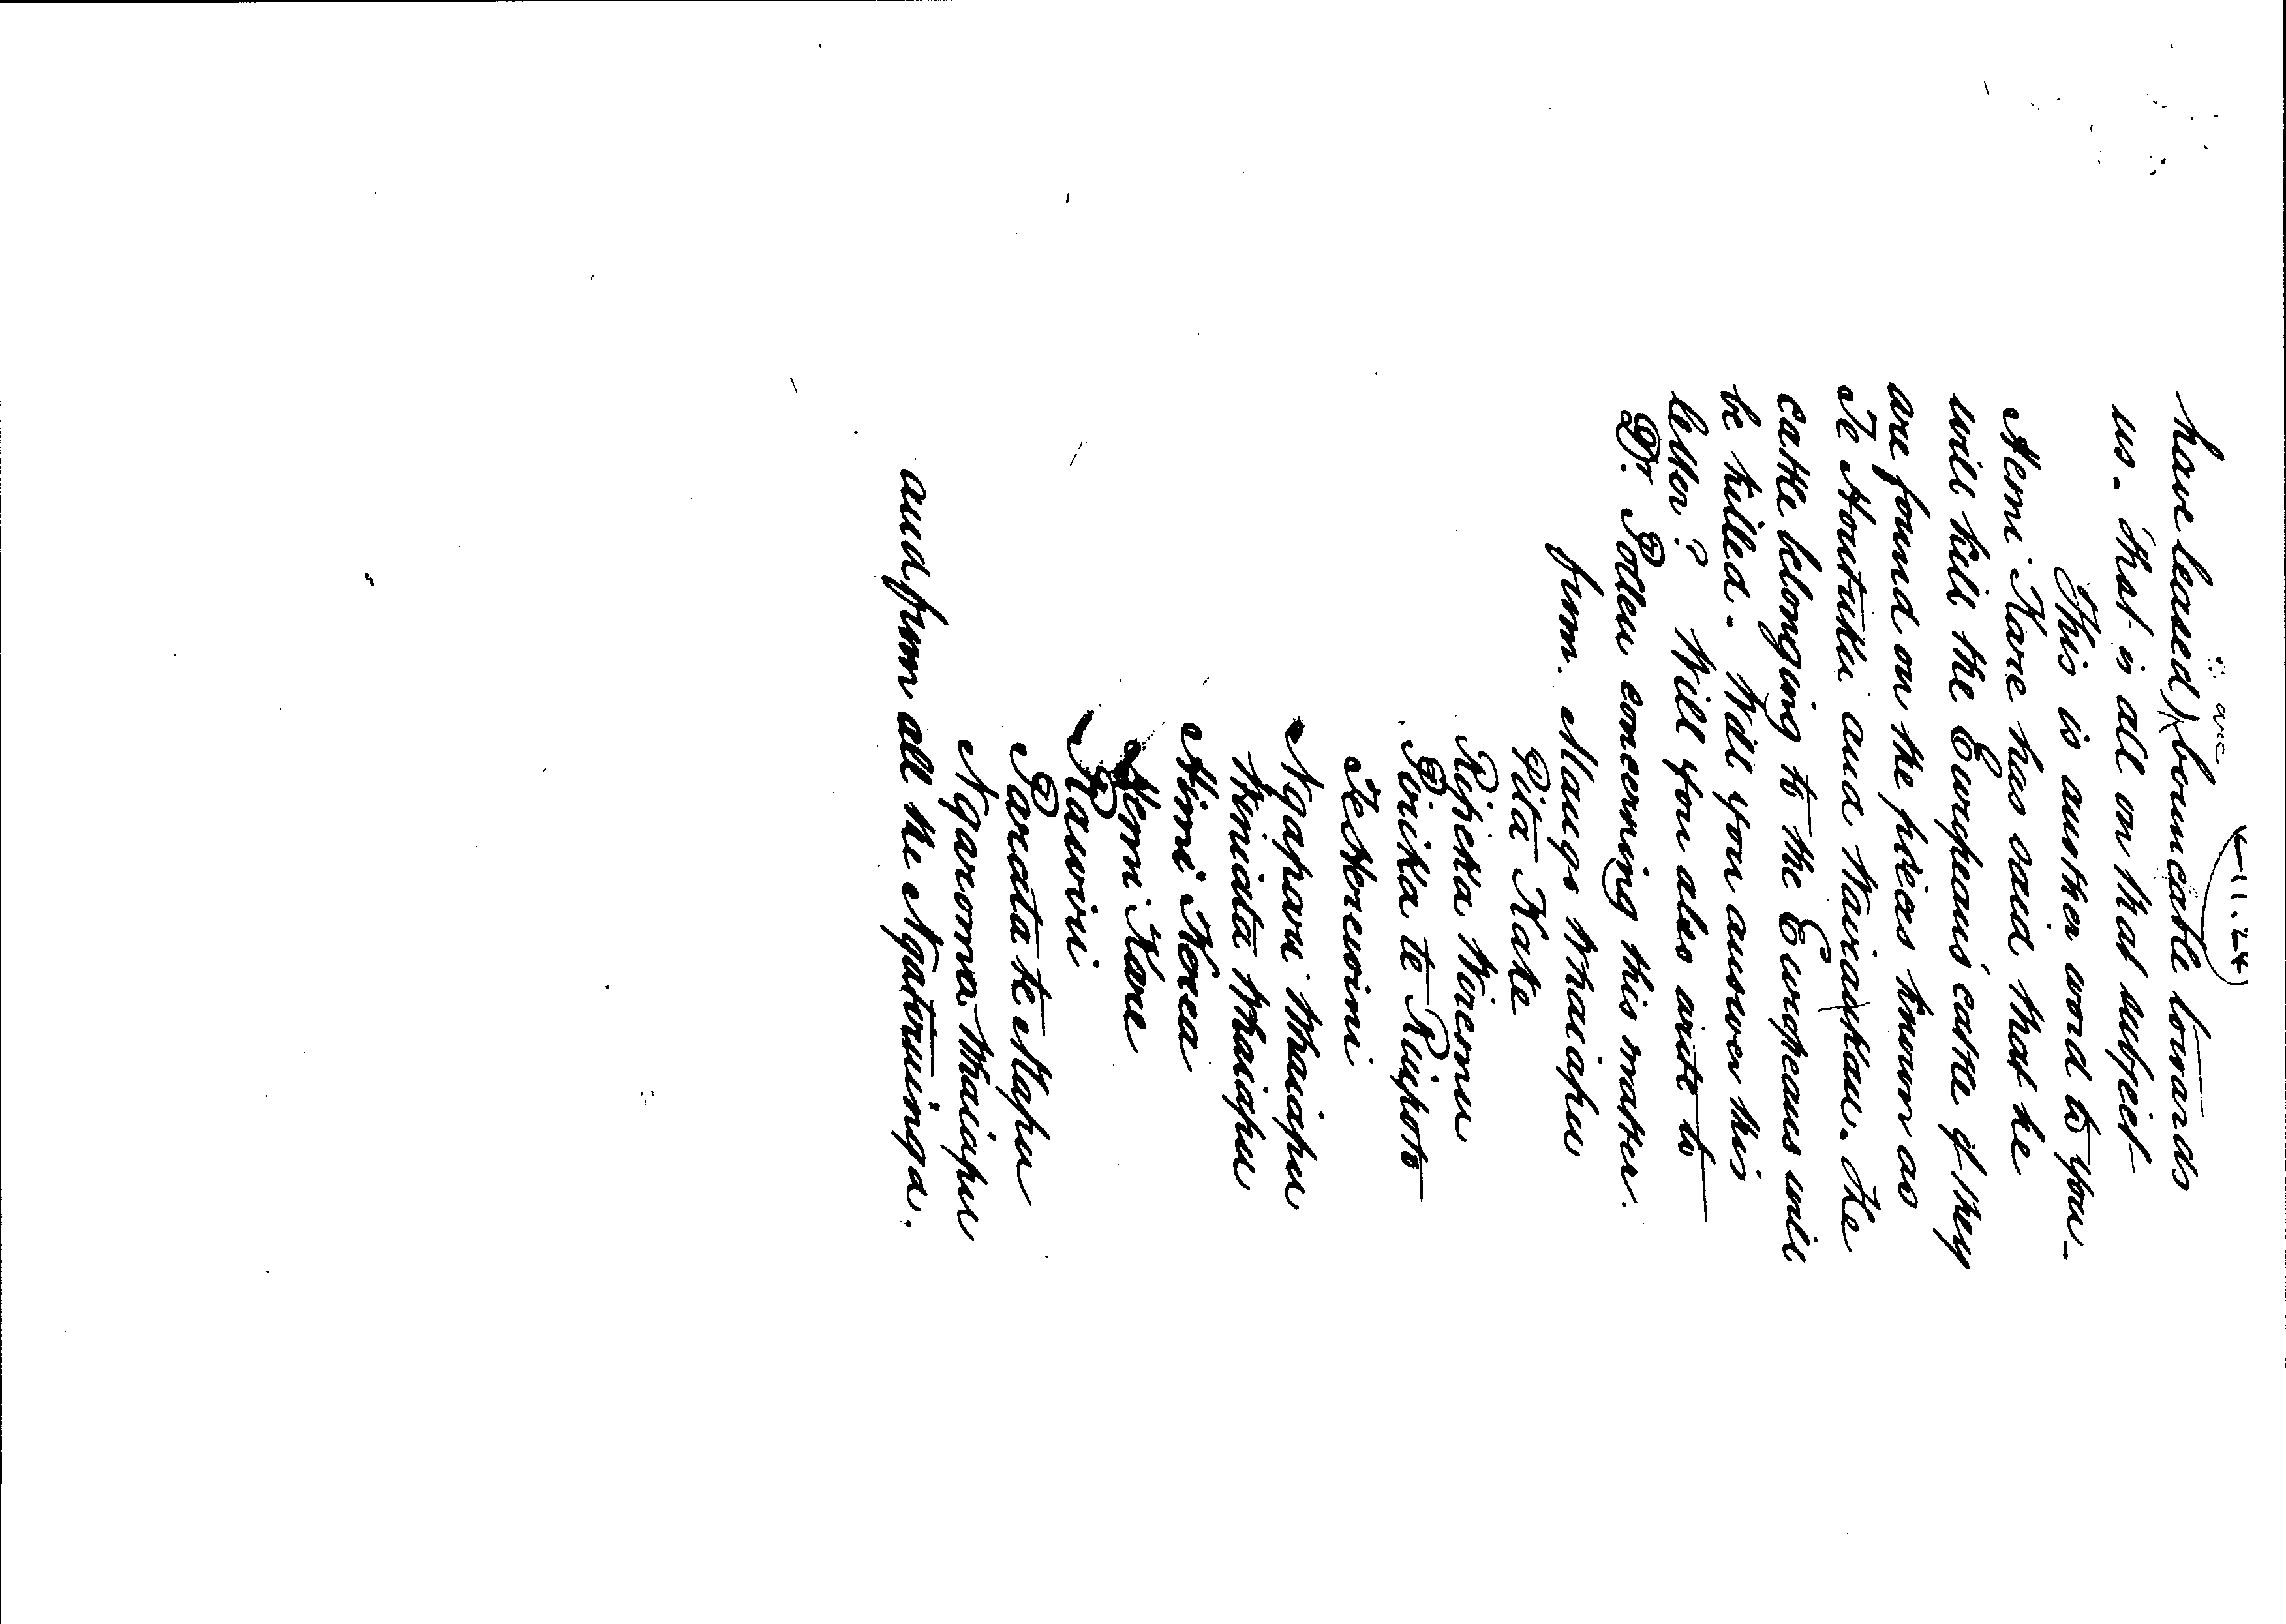 have leased) are bouncable towards
us. That is all on that subject
This is another word to you -
Hemi Kare has said that he
will kill the Europeans' cattle if they
are found on the pieces known as
Te Houtuki and Wairaukau. The
cattle belonging to the Europeans will
be killed. Will you answer this
letter? Will you also write to
Dr. Pollen concerning this matter.
from. Maugo Whaiapu
Pita Kake
Ripeka Wiremu
Poika te Ruipoto
Te Herewini
Ngaparu Whaiapu
Winiata Whaiapu
Himi Kerea
Hemi Kare
Rawiri
Parata te Mapu
Ngaroma Whaiapu
and from all the Ngatiruinga.